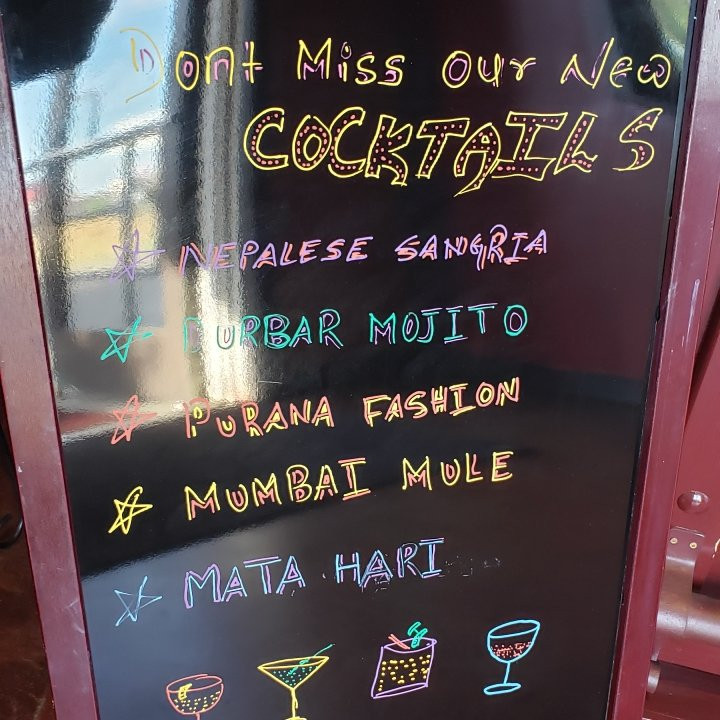 Dont Miss Our New
COCKTAILS
NEPALESE SANGRIA
DURBAR MOJITO
PURANA FASHION
MUMBAI MULE
MATA HARI